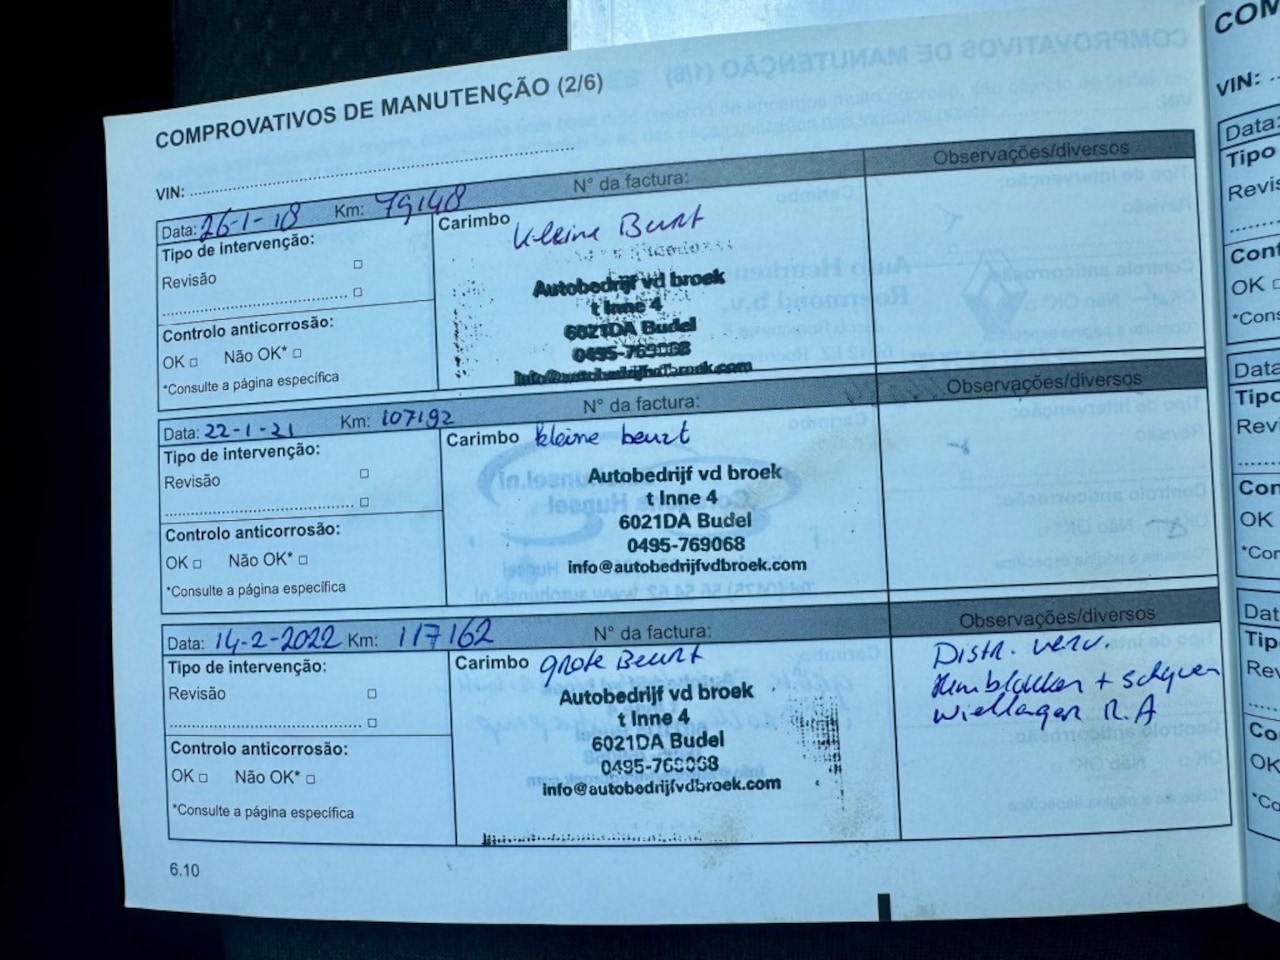 COMPROVATIVOS DE MANUTENÇÃO (2/6)
VIN:
Data: 26-1-18 Km: 79148 N° da factura: Observações/diversos
Tipo de intervenção:
Revisão
Controlo anticorrosão:
OK Não OK*
*Consulte a página específica
Carimbo kleine Beurt
Autobedrijf vd broek
t Inne 4
6021DA Budel
0495-769068
info@autobedrijfvdbroek.com
Data: 22-1-21 Km: 107192 N° da factura: Observações/diversos
Tipo de intervenção:
Revisão
Controlo anticorrosão:
OK Não OK*
*Consulte a página específica
Carimbo kleine beurt
Autobedrijf vd broek
t Inne 4
6021DA Budel
0495-769068
info@autobedrijfvdbroek.com
Data: 14-2-2022 Km: 117162 N° da factura: Observações/diversos
Tipo de intervenção:
Revisão
Controlo anticorrosão:
OK Não OK*
*Consulte a página específica
Carimbo grote Beurt
Autobedrijf vd broek
t Inne 4
6021DA Budel
0495-769068
info@autobedrijfvdbroek.com
Distr. verv.
Remblokken + schijven
wiellager R.A
6.10
COM
VIN:
Data:
Tipo
Revis
Cont
OK
*Cons
Data
Tipo
Revi
Con
OK
*Cor
Dat
Tip
Rev
Co
OK
*Co